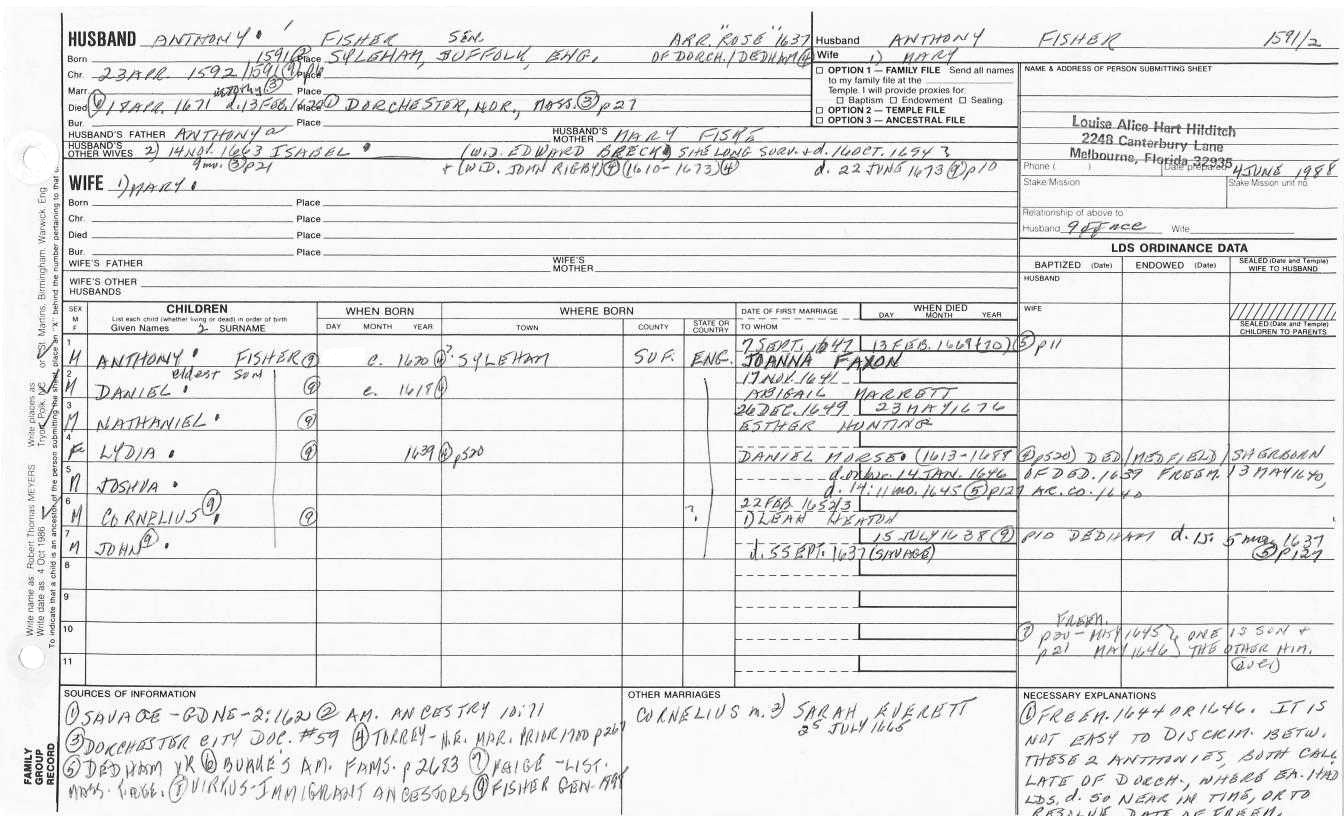 HUSBAND ANTHONY FISHER SEN. ARR. "ROSE" 1637
Husband ANTHONY FISHER 1591/2
Wife 1) MARY
Born 1591 ② Place SYLEHAM, SUFFOLK, ENG. OF DORCH./DEDHAM ④
Chr. 23 APR. 1592/1591 ⑨ p16 Place
Marr.
Died 18 APR. 1671 d. 13 FEB. 1670 ① Place DORCHESTER, NOR, MASS. ③ p27
Bur. Place
HUSBAND'S FATHER ANTHONY ②
HUSBAND'S MOTHER MARY FISKE
HUSBAND'S OTHER WIVES 2) 14 NOV. 1663 ISABEL (WID. EDWARD BRECK) SHE LONG SURV. + d. 16 OCT. 1694 ?
9 mo. ③ p21 + (WID. JOHN RIGBY) ④ (1610-1673) ④ d. 22 JUNE 1673 ⑨ p10
☐ OPTION 1 — FAMILY FILE Send all names
to my family file at the
Temple. I will provide proxies for:
☐ Baptism ☐ Endowment ☐ Sealing.
☐ OPTION 2 — TEMPLE FILE
☐ OPTION 3 — ANCESTRAL FILE
NAME & ADDRESS OF PERSON SUBMITTING SHEET
Louise Alice Hart Hilditch
2248 Canterbury Lane
Melbourne, Florida 32935
Phone ( ) Date prepared 4 JUNE 1988
Stake Mission Stake Mission unit no.
Relationship of above to
Husband Wife
WIFE 1) MARY
Born Place
Chr. Place
Died Place
Bur. Place
WIFE'S FATHER WIFE'S MOTHER
WIFE'S OTHER HUSBANDS
LDS ORDINANCE DATA
BAPTIZED (Date) ENDOWED (Date) SEALED (Date and Temple) WIFE TO HUSBAND
HUSBAND
WIFE
SEALED (Date and Temple) CHILDREN TO PARENTS
SEX M F
CHILDREN
List each child (whether living or dead) in order of birth
Given Names SURNAME
WHEN BORN
DAY MONTH YEAR
WHERE BORN
TOWN COUNTY STATE OR COUNTRY
DATE OF FIRST MARRIAGE
TO WHOM
WHEN DIED
DAY MONTH YEAR
1 M ANTHONY FISHER ⑨ c. 1620 SYLEHAM SUF. ENG. 7 SEPT. 1647 13 FEB. 1669 (70) ⑤ p11
eldest son JOANNA FAXON
2 M DANIEL ⑨ c. 1618 ④ 17 NOV. 1641
ABIGAIL MARRETT
3 M NATHANIEL ⑨ 26 DEC. 1649 23 MAY 1676
ESTHER HUNTING
4 F LYDIA ⑨ 1639 p520 DANIEL MORSE (1613-1688 p520) DED/MEDFIELD/SHERBORN
5 M JOSHUA 14 JAN. 1646 OF DED. 1639 FREEM. 13 MAY 1640,
d. 14: 11 mo. 1645 ⑤ p127 AR. CO. 1640
6 M CORNELIUS ⑨ ⑨ ? 22 FEB. 1652/3
1) LEAH HEATON
7 M JOHN ⑨ 15 JULY 1638 ⑨ p10 DEDHAM d. 15: 5 mo. 1637
d. 5 SEPT. 1637 (SAVAGE) ⑤ p127
8
9
10
11
FREEM.
⑦ p20 — MAY 1645 } ONE IS SON +
p21 MAY 1646 } THE OTHER HIM.
(OVER)
SOURCES OF INFORMATION
① SAVAGE - GDNE - 2:162 ② AM. ANCESTRY 10:71
③ DORCHESTER CITY DOC. #59 ④ TORREY - N.E. MAR. PRIOR 1700 p267
⑤ DEDHAM VR ⑥ BURKE'S AM. FAMS. p2683 ⑦ PAIGE - LIST.
⑧ VIRKUS - IMMIGRANT ANCESTORS ⑨ FISHER GEN.
OTHER MARRIAGES
CORNELIUS m. 2) SARAH EVERETT
25 JULY 1665
NECESSARY EXPLANATIONS
① FREEM. 1644 OR 1646. IT IS
NOT EASY TO DISCRIM. BETW.
THESE 2 ANTHONIES, BOTH CALL
LATE OF DORCH., WHERE EA. HAD
LDS. d. SO NEAR IN TIME, OR TO
RESOLVE DATE OF FREEM.
FAMILY GROUP RECORD
Write name as: Robert Thomas MEYERS
Write date as: 4 Oct 1986
Write places as: Tryon, Polk, NC or St. Martins, Birmingham, Warwick, Eng
To indicate that a child is an ancestor of the person submitting the sheet, place an "X" behind the number pertaining to that c